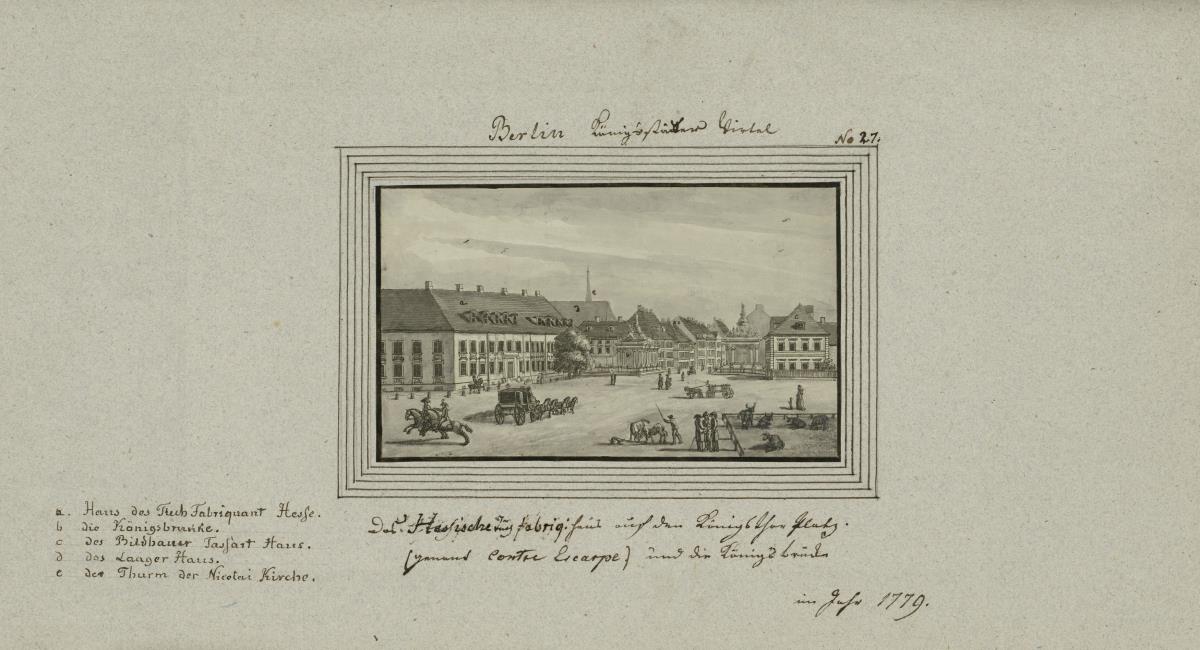 Berlin Königsstädter Virtel
No 27.
a. Haus des Tuch Fabriquant Hesse.
b die Königsbrucke.
c des Bildhauer Tassart Haus.
d das Laager Haus.
e der Thurm der Nicolai Kirche.
Das Hessische fabriq: haus auf den Königs Thor Platz.
(genant Contre Escarpe) und die Königsbrücke
im Jahr 1779.